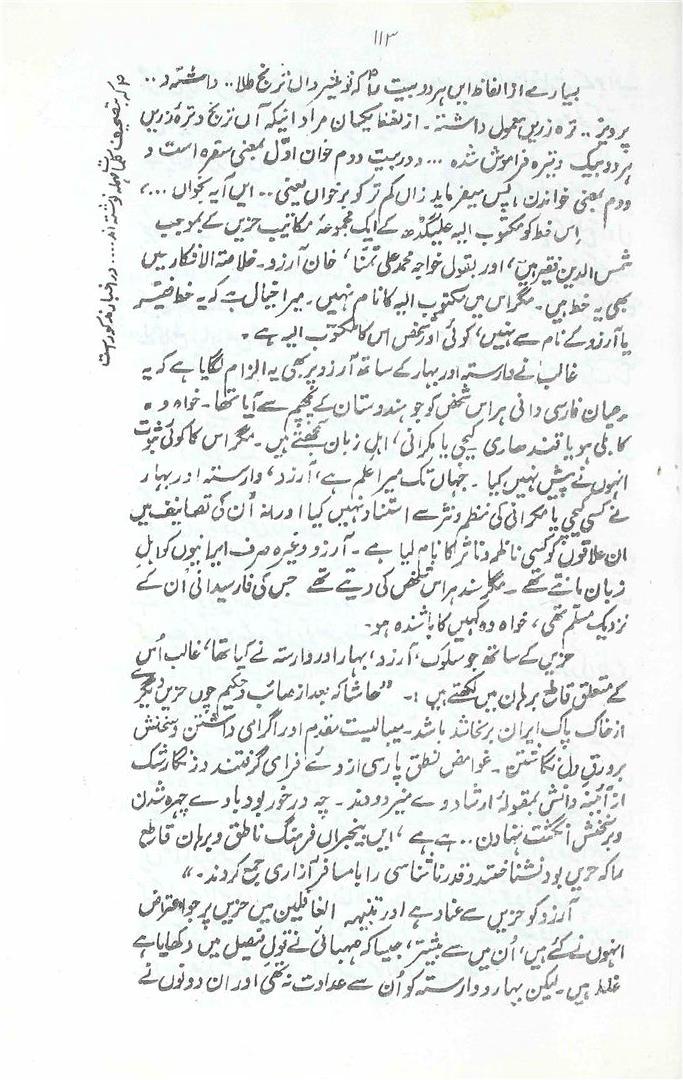 ۱۱۳
بسیارے از الفاظ ایں ہر دو بیت را کہ نوشیرواں ترنج طلا .. داشتہ و ..
پرویز .. ترہ زریں معمول داشتہ ۔ از لفظ یکجان مراد اینکہ آں ترنج و ترۂ زریں
ہر دو بیک وتیرہ فراموش شدہ ... و در بیت دوم خوان اوّل بمعنی سفرہ است و
دوم بمعنی خواندن، پس میفرماید زاں کم ترکو برخواں یعنی .. ایں آیہ بخواں ....
اِس خط کو مکتوب الیہ علیگڈھ کے ایک مجموعۂ مکاتیب حزیں کے بموجب
شمس الدین فقیر ہیں، اور بقول خواجہ محمد علی تمنّا، خان آرزو ۔ خلاصۃ الافکار میں
بھی یہ خط ہیں ۔ مگر اس میں مکتوب الیہ کا نام نہیں ۔ میرا خیال ہے کہ یہ خط فقیر
یا آرزو کے نام سے نہیں، کوئی اور شخص اس کا مکتوب الیہ ہے ۔
غالب نے وارستہ اور بہار کے ساتھ آرزو پر بھی یہ الزام لگایا ہے کہ یہ
مدعیان فارسی دانی ہر اس شخص کو جو ہندوستان کے پچھم سے آیا تھا ۔ خواہ وہ
کابلی ہو یا قندھاری کیچی یا مکرانی، اہل زبان سمجھتے ہیں ۔ مگر اس کا کوئی ثبوت
انہوں نے پیش نہیں کیا ۔ جہاں تک میرا علم ہے، آرزو، وارستہ اور بہار
نے کسی کیچی یا مکرانی کی نظم و نثر سے استناد نہیں کیا اور نہ اُن کی تصانیف میں
ان علاقوں کو کسی ناظم و ناثر کا نام لیا ہے ۔ آرزو وغیرہ صرف ایرانیوں کو اہل
زبان مانتے تھے ۔ مگر سند ہر اس شخص کی دیتے تھے جس کی فارسیدانی اُن کے
نزدیک مسلم تھی، خواہ وہ کہیں کا باشندہ ہو ۔
حزیں کے ساتھ جو سلوک، آرزو، بہار اور وارستہ نے کیا تھا، غالب اُس
کے متعلق قاطع برہان میں لکھتے ہیں :۔ "حاشا کہ بعد از صائب و حکیم چوں حزیں دیگرے
از خاک پاک ایران برخاشد باشد ۔ میبایست مقدم اورا گرامی داشتن و سخنش
بر ورق دل نگاشتن ۔ غوامض نطق پارسی از وے فرامی گرفتند و زنگار شک
از آئینہ دانش بمقولۂ ارشاد وے میزدودند ۔ چہ درخور بود با وے چہرہ شدن
و برسخنش انگشت نہادن .. ہے ہے، ایں بیخبراں فرہنگ ناطق و برہان قاطع
ما کہ حزیں بود نشناختند و قدر ناشناسی را با مسافر آزاری جمع کردند ۔"
آرزو کو حزیں سے عناد ہے اور تنبیہہ الغافلین میں حزیں پر جو اعتراض
انہوں نے کئے ہیں، اُن میں سے بیشتر، جیسا کہ صہبائی نے قول فیصل میں دکھایا ہے
غلط ہیں ۔ لیکن بہار و وارستہ کو اُن سے عداوت نہ تھی اور ان دونوں نے
کہ بتصحیف کلمات ... نوشتہ اند .... در اخبار مذکور است